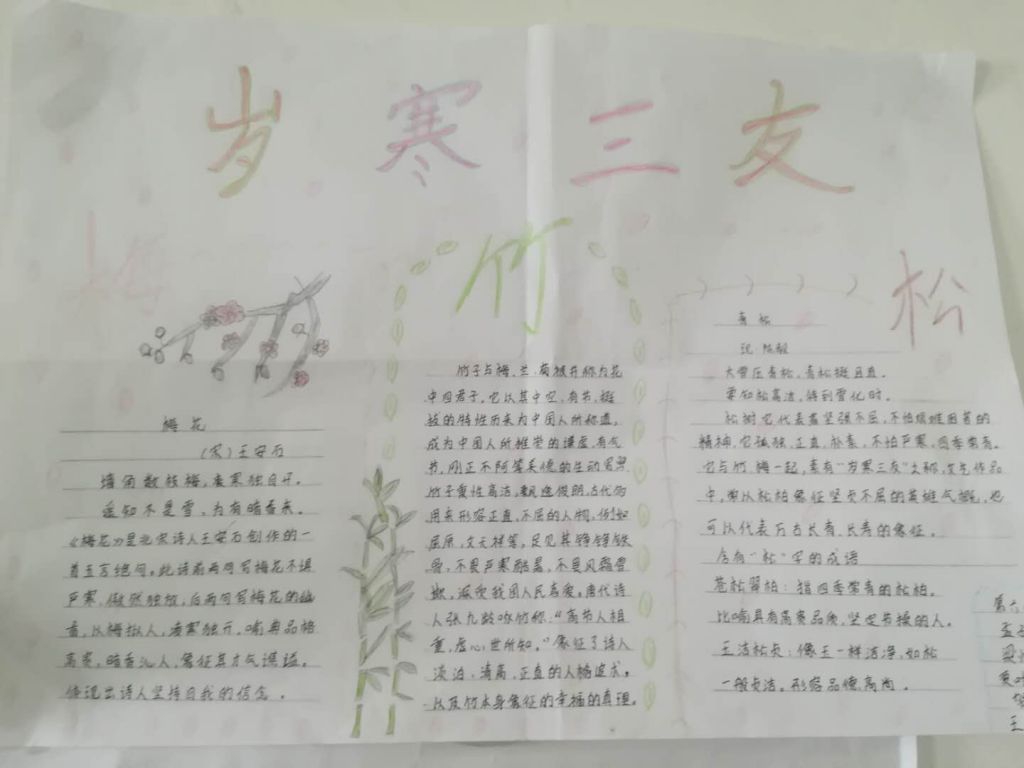 岁寒三友
梅
梅花
(宋)王安石
墙角数枝梅,凌寒独自开。
遥知不是雪,为有暗香来。
《梅花》是北宋诗人王安石创作的一
首五言绝句。此诗前两句写梅花不惧
严寒,傲然独放,后两句写梅花的幽
香,以梅拟人,凌寒独开,喻典品格
高贵,暗香沁人,象征其才气谯溢。
体现出诗人坚持自我的信念。
竹
竹子与梅、兰、菊被并称为花
中四君子,它以其中空、有节、挺
拔的特性历来为中国人所称道,
成为中国人所推崇的谦虚、有气
节、刚正不阿等美德的生动写照
竹子秉性高洁,超逸俊朗,古代仍
用来形容正直、不屈的人物,例如
屈原,文天祥等,足见其铮铮铁
骨,不畏严寒酷暑,不畏风霜雪
欺,深受我国人民喜爱,唐代诗
人张九龄咏竹称,“高节人相
重,虚心世所知。”象征了诗人
淡泊、清高、正直的人格追求。
以及竹本身象征的幸福的真理。
松
青松
现 陈毅
大雪压青松,青松挺且直。
要知松高洁,待到雪化时。
松树它代表着坚强不屈,不怕艰难困苦的
精神,它顽强、正直、朴素、不怕严寒、四季常青。
它与竹、梅一起,素有“岁寒三友”之称,文艺作品
中,常以松柏象征坚贞不屈的英雄气概,也
可以代表万古长青、长寿的象征。
含有“松”字的成语
苍松翠柏:指四季常青的松柏。
比喻具有高贵品质,坚定节操的人。
玉洁松贞:像玉一样洁净,如松
一般贞洁。形容品德高尚。
第六
孟子
梁
王